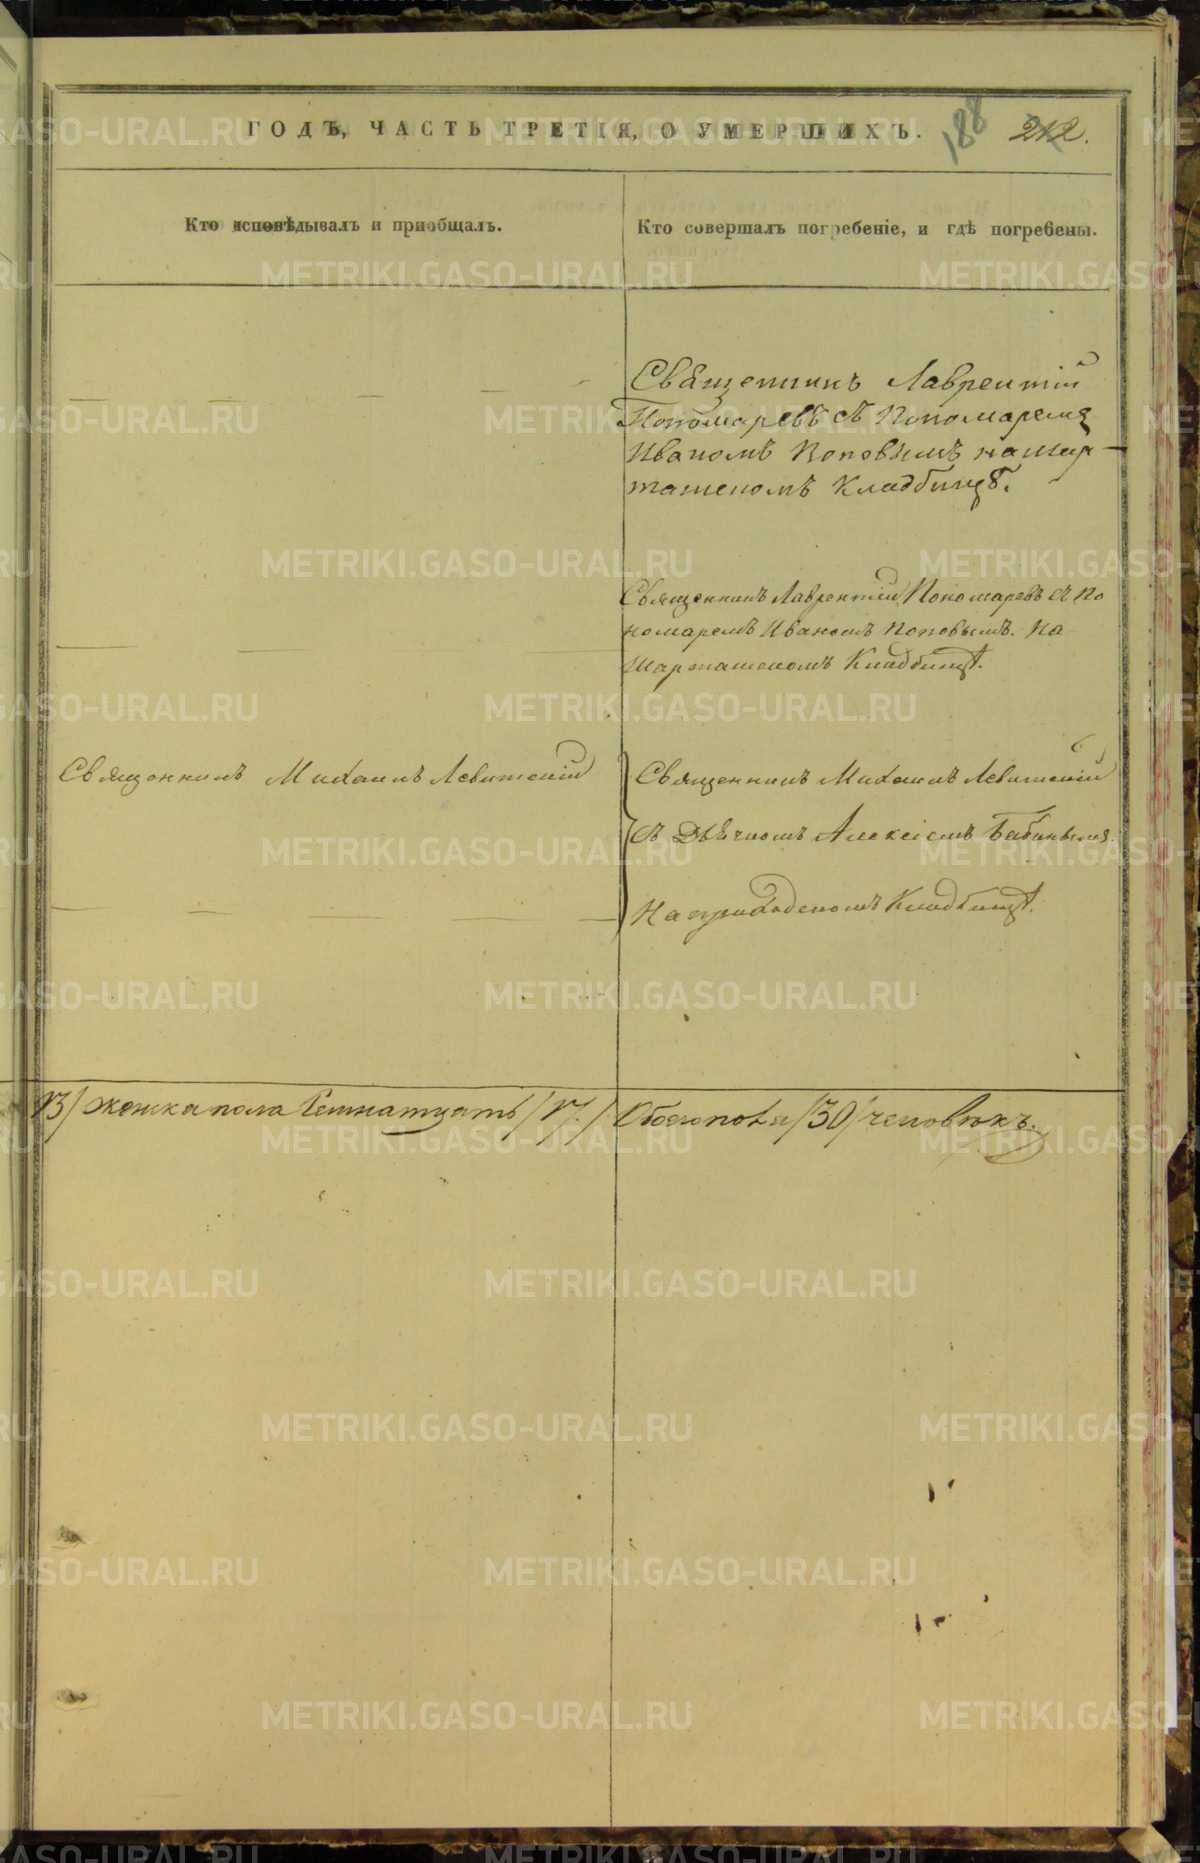 ГОДЪ, ЧАСТЬ ТРЕТІЯ, О УМЕРШИХЪ.
188
212.
Кто исповѣдывалъ и пріобщалъ.
Кто совершалъ погребеніе, и гдѣ погребены.
Священникъ Лаврентій
Пономаревъ съ Пономаремъ
Иваномъ Поповымъ на Шар-
ташскомъ Кладбищѣ.
Священникъ Лаврентій Пономаревъ съ По
номаремъ Иваномъ Поповымъ. На
Шарташскомъ Кладбищѣ.
Священникъ Михаилъ Левитскій
Священникъ Михаилъ Левитскій
съ Дьячкомъ Алексіемъ Бабинымъ
На приходскомъ Кладбищѣ.
13/ женска пола Семнатцать /17./ Обоего пола /30/ человѣкъ.
METRIKI.GASO-URAL.RU